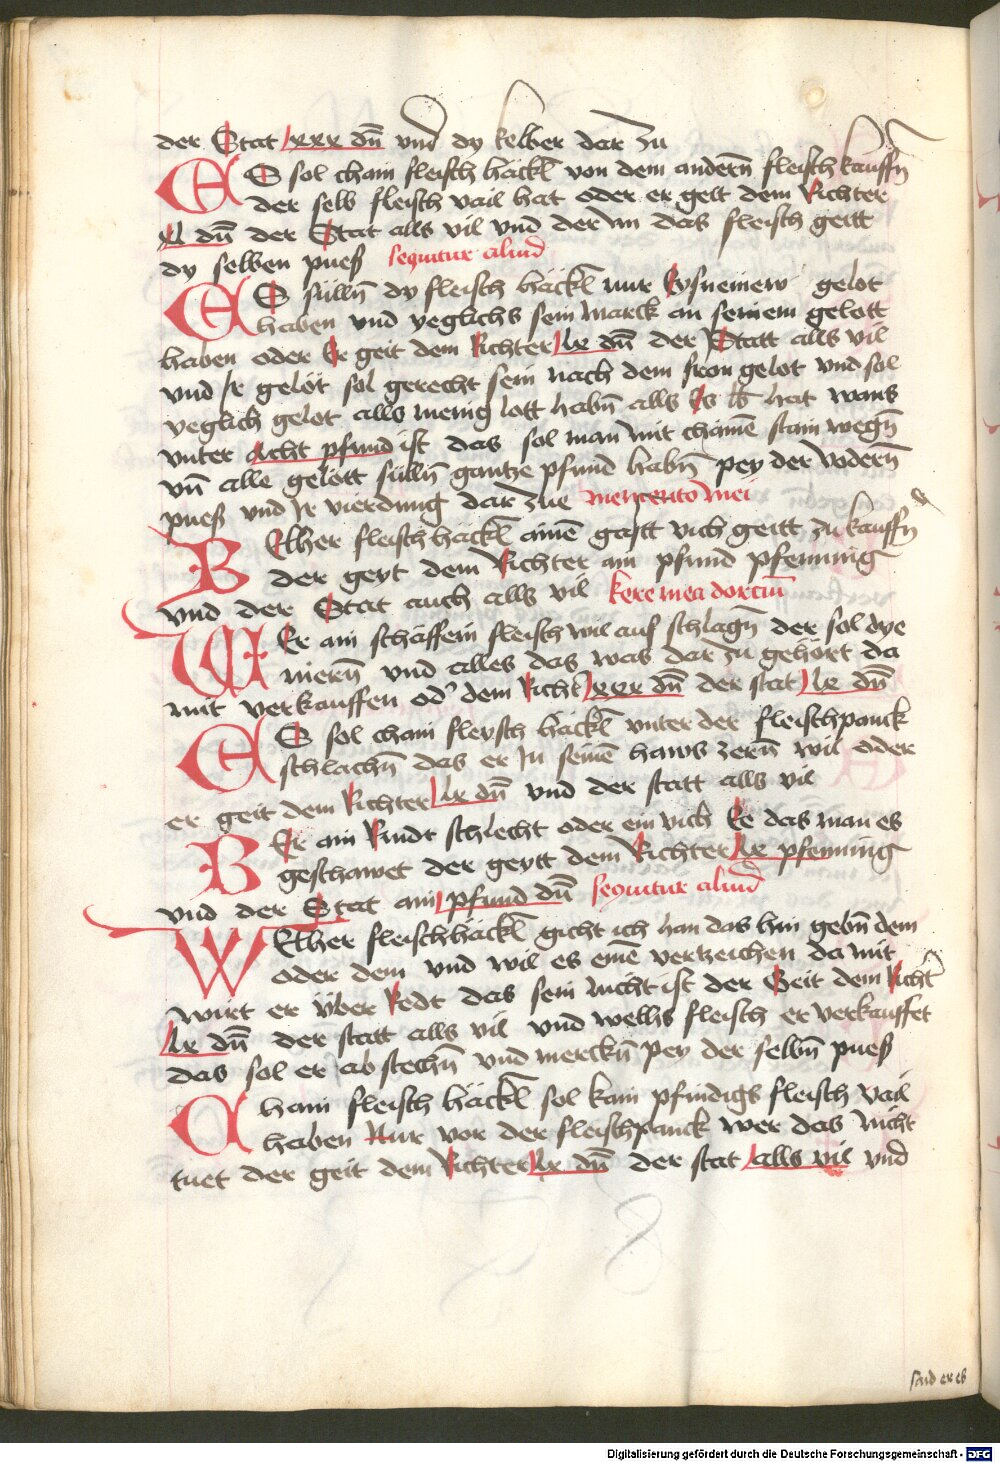 der Stat lxxx dn̄ vnd dy kelber dar zu
ES sol chain fleisch hackl von dem andern̄ fleisch kauffn̄
der selb fleisch vail hat oder er geit dem Richter
lx dn̄ der Stat alls vil vnd der im das fleisch geitt
dy selben pueß sequitur aliud
ES süllñ dy fleisch hackl nur Eysneinew gelot
haben vnd yeglichs sein marck an seinem gelott
haben oder Er geit dem Richter lx dn̄ der Statt alls vil
vnd Ir gelöt sol gerecht sein nach dem fron gelot vnd sol
yeglich gelot alls menig lott habn̄ alls Es lb hat wans
vnter Acht pfund ist das sol man mit chainē stain wegn̄
vn̄ alle gelött süllñ gantze pfund habn̄ pey der vodern̄
pueß vnd Ir vierdung dar zue mencento mei
WElher fleisch hackl ainē gastt vich geitt zu kauffn̄
der geyt dem Richter ain pfund pfenning
vnd der Stat auch alls vil kere mea dorcm̄
WEr ain schäffein fleisch wil auf schlagn̄ der sol dye
niern̄ vnd alles das was dar zu gehört da
mit verkauffen od' dem Richt' lxxx dn̄ der stat lx dn̄
ES sol chain fleysch hackl vnter der fleischpanck
schlachn̄ das er In seinē haws zern̄ wil oder
er geit dem Richter lx dn̄ vnd der statt alls vil
WEr ain Rindt schlecht oder ein vich Ee das man es
geschawet der geytt dem Richter lx pfenning
vnd der Stat ain pfund dn̄ sequitur aliud
WElher fleischhackl gicht ich han das hin gebn̄ dem
oder dem vnd wil es einē vertzeichen da mit
wirt er über Redt das sein nicht ist der Geit dem Richt'
lx dn̄ der statt alls vil vnd wellis fleisch er verkauffet
das sol er ab stechn̄ vnd merckn̄ pey der selbn̄ pueß
Chain fleisch hackl sol kain pfindigs fleisch vail
haben Nur vor der fleischpanck wer das nicht
tuet der geit dem Richter lx dn̄ der stat alls vil vnd
Digitalisierung gefördert durch die Deutsche Forschungsgemeinschaft - DFG